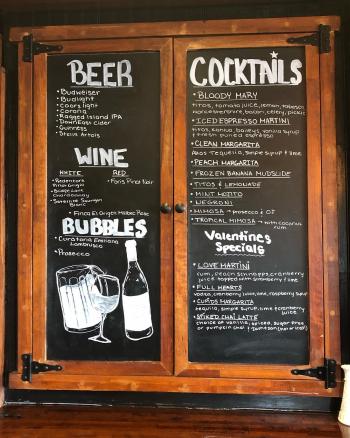 BEER
• Budweiser
• Budlight
• Coors light
• Corona
• Ragged Island IPA
• DownEast Cider
• Guinness
• Stella Artois
WINE
WHITE
• Pinot Grigio
Chardonnay
• Sauvignon
Blanc
RED
Pinot Noir
• Finca El Origen Malbec Rose
BUBBLES
Lambrusco
• Prosecco
COCKTAILS
• BLOODY MARY
titos, tomato juice, lemon, tabasco
worcestershire, bacon, celery, pickle
• ICED ESPRESSO MARTINI
titos, kahlua, baileys, vanilla syrup
+ fresh pulled espresso
• CLEAN MARGARITA
Tequila, simple syrup + lime
• PEACH MARGARITA
• FROZEN BANANA MUDSLIDE
• TITOS & LEMONADE
• MINT MOJITO
• NEGRONI
• MIMOSA → prosecco & OJ
• TROPICAL MIMOSA → with coconut
rum
Valentines
Specials
• LOVE MARTINI
rum, peach schnapps, cranberry
juice topped with strawberry + lime
• FULL HEARTS
vodka, cranberry juice, lime, raspberry syrup
• CUPIDS MARGARITA
tequila, simple syrup, lime & cranberry
juice
• SPIKED CHAI LATTE
choice of vanilla, spiced, sugar free
or pumpkin chai + Jameson (hot or iced)